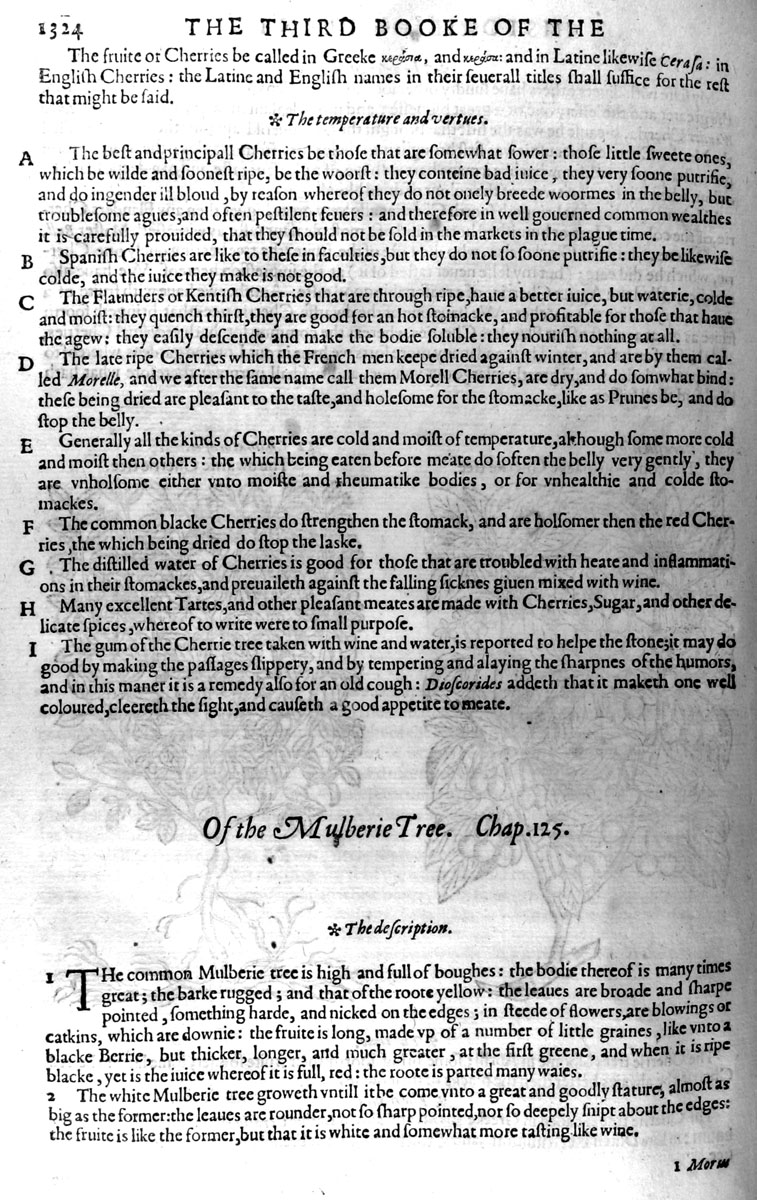 1324 THE THIRD BOOKE OF THE
The fruite or Cherries be called in Greeke κεράσια, and κεράσια: and in Latine likewiſe Ceraſa: in
Engliſh Cherries: the Latine and Engliſh names in their ſeuerall titles ſhall ſuffice for the reſt
that might be ſaid.
✻ The temperature and vertues.
A The beſt and principall Cherries be thoſe that are ſomewhat ſower: thoſe little ſweete ones,
which be wilde and ſooneſt ripe, be the woorſt: they conteine bad iuice, they very ſoone putrifie,
and do ingender ill bloud, by reaſon whereof they do not onely breede woormes in the belly, but
troubleſome agues, and often peſtilent feuers: and therefore in well gouerned common wealthes
it is carefully prouided, that they ſhould not be ſold in the markets in the plague time.
B Spaniſh Cherries are like to theſe in faculties, but they do not ſo ſoone putrifie: they be likewiſe
colde, and the iuice they make is not good.
C The Flaunders or Kentiſh Cherries that are through ripe, haue a better iuice, but waterie, colde
and moiſt: they quench thirſt, they are good for an hot ſtomacke, and profitable for thoſe that haue
the agew: they eaſily deſcende and make the bodie ſoluble: they nouriſh nothing at all.
D The late ripe Cherries which the French men keepe dried againſt winter, and are by them cal-
led Morelle, and we after the ſame name call them Morell Cherries, are dry, and do ſomwhat bind:
theſe being dried are pleaſant to the taſte, and holeſome for the ſtomacke, like as Prunes be, and do
ſtop the belly.
E Generally all the kinds of Cherries are cold and moiſt of temperature, although ſome more cold
and moiſt then others: the which being eaten before meate do ſoften the belly very gently, they
are vnholſome either vnto moiſte and rheumatike bodies, or for vnhealthie and colde ſto-
mackes.
F The common blacke Cherries do ſtrengthen the ſtomack, and are holſomer then the red Cher-
ries, the which being dried do ſtop the laske.
G The diſtilled water of Cherries is good for thoſe that are troubled with heate and inflammati-
ons in their ſtomackes, and preuaileth againſt the falling ſicknes giuen mixed with wine.
H Many excellent Tartes, and other pleaſant meates are made with Cherries, Sugar, and other de-
licate ſpices, whereof to write were to ſmall purpoſe.
I The gum of the Cherrie tree taken with wine and water, is reported to helpe the ſtone; it may do
good by making the paſſages ſlippery, and by tempering and alaying the ſharpnes of the humors,
and in this maner it is a remedy alſo for an old cough: Dioſcorides addeth that it maketh one well
coloured, cleereth the ſight, and cauſeth a good appetite to meate.
Of the Mulberie Tree. Chap.125.
✻ The deſcription.
1 THe common Mulberie tree is high and full of boughes: the bodie thereof is many times
great; the barke rugged; and that of the roote yellow: the leaues are broade and ſharpe
pointed, ſomething harde, and nicked on the edges; in ſteede of flowers, are blowings or
catkins, which are downie: the fruite is long, made vp of a number of little graines, like vnto a
blacke Berrie, but thicker, longer, and much greater, at the firſt greene, and when it is ripe
blacke, yet is the iuice whereof it is full, red: the roote is parted many waies.
2 The white Mulberie tree groweth vntill it be come vnto a great and goodly ſtature, almoſt as
big as the former: the leaues are rounder, not ſo ſharp pointed, nor ſo deeply ſnipt about the edges:
the fruite is like the former, but that it is white and ſomewhat more taſting like wine.
1 Morus